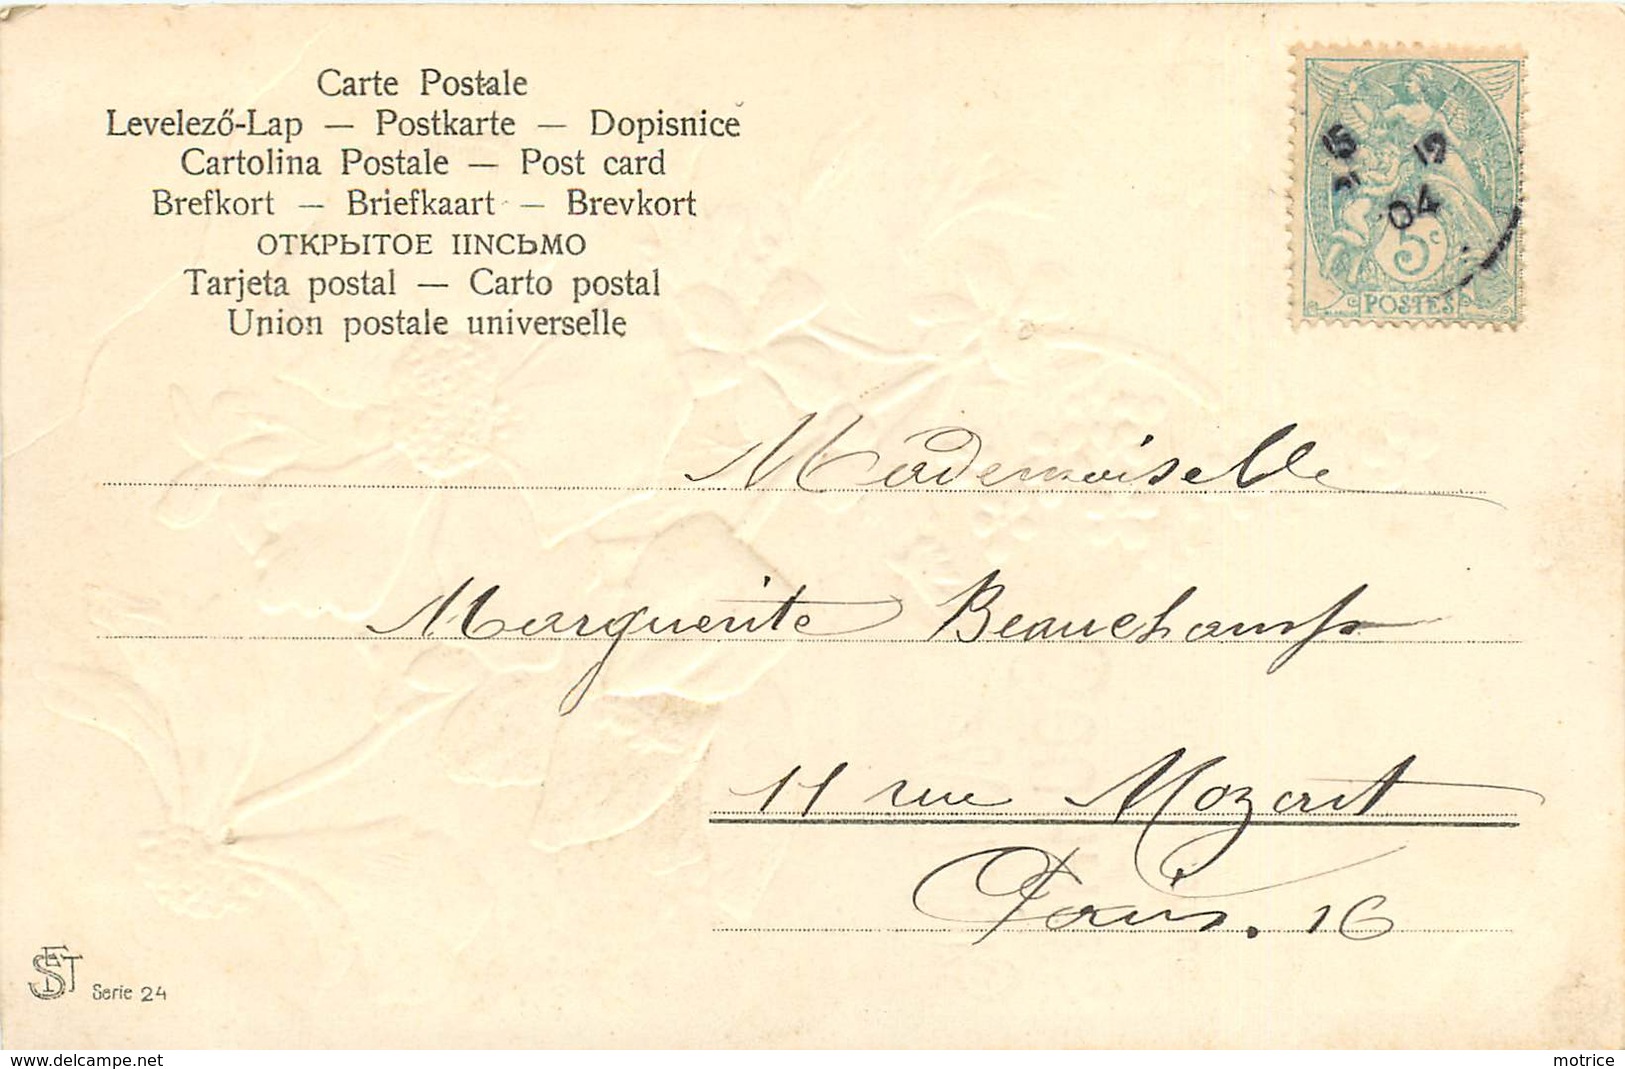 Carte Postale
Levelező-Lap — Postkarte — Dopisnice
Cartolina Postale — Post card
Brefkort — Briefkaart — Brevkort
ОТКРЫТОЕ IINСЬМО
Tarjeta postal — Carto postal
Union postale universelle
15 9
04
5c
POSTES
Mademoiselle
Marguerite Beauchamp
11 rue Mozart
Paris. 16
Serie 24
www.delcampe.net
motrice